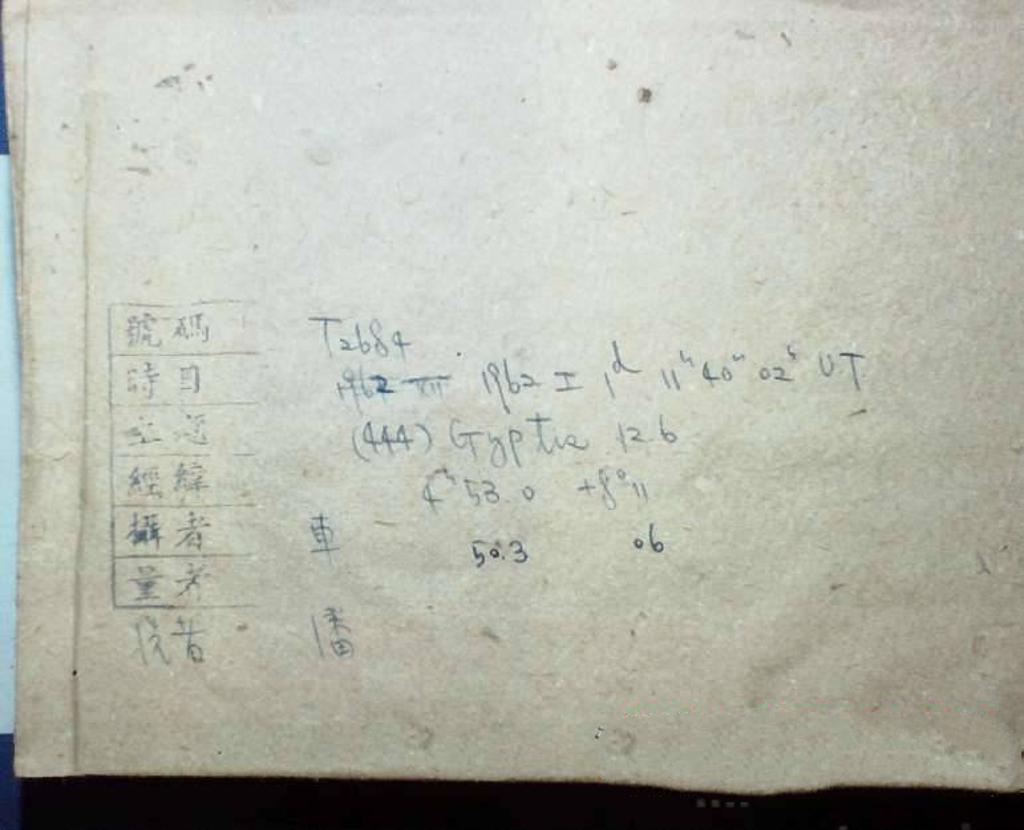 號碼 T2684
時日 1962 XII 1962 I 1ᵈ 11ʰ 40ᵐ 02ˢ UT
(444) Gyptis 12.6
經緯 4ʰ 53.0 +8° 11
攝者 車 50.3 06
量者
者 潘